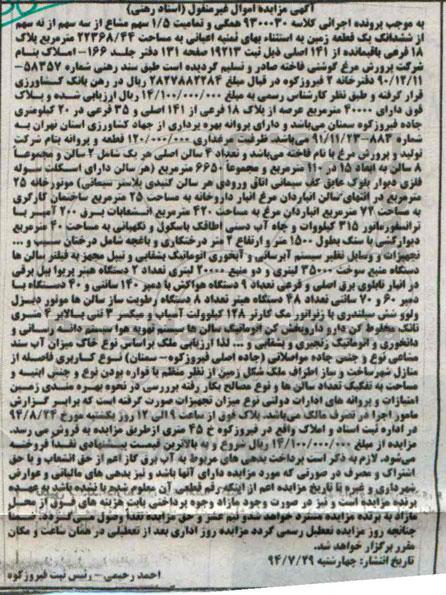 آگهی مزایده اموال غیرمنقول (اسناد رهنی)
به موجب پرونده اجرائی کلاسه ۹۳۰۰۰۳۰ همگی و تمامیت ۱/۵ سهم مشاع از سه سهم از نه سهم
از ششدانگ یک قطعه زمین به استثناء بهای ثمنیه اعیانی به مساحت ۲۲۳۶۸/۴۴ مترمربع پلاک
۱۸ فرعی باقیمانده از ۱۴۱ اصلی ذیل ثبت ۱۹۲۱۳ صفحه ۱۳۱ دفتر جلد ۱۶۶- املاک بنام
شرکت پرورش مرغ گوشتی فاخته صادر و تسلیم گردیده است طبق سند رهنی شماره ۵۸۳۵۷-
۹۰/۱۲/۱۱ دفترخانه ۲ فیروزکوه در قبال مبلغ ۲۸۲۷۸۸۲۲۸۴ ریال در رهن بانک کشاورزی
قرار گرفته و طبق نظر کارشناس رسمی به مبلغ ۱۴/۱۰۰/۰۰۰/۰۰۰ ریال ارزیابی شده و پلاک
فوق دارای ۴۰۰۰۰ مترمربع عرصه از پلاک ۱۸ فرعی از ۱۴۱ اصلی و ۳۵ فرعی در ۲۰ کیلومتری
جاده فیروزکوه سمنان می‌باشد و دارای پروانه بهره برداری از جهاد کشاورزی استان تهران به
شماره ۸۸۳-۹۱/۱۱/۲۳ می‌باشد. ظرفیت مرغداری ۱۲۰/۰۰۰ قطعه و پروانه بنام شرکت
تولید و پرورش مرغ با نام فاخته می‌باشد و تعداد ۴ سالن اصلی هر یک شامل ۲ سالن و مجموعا
۸ سالن به ابعاد ۱۵ در ۱۱۰ مترمربع و مجموعا ۶۶۵۰ مترمربع (هر سالن دارای اسکلت سوله
فلزی دیوار بلوک عایق کف سیمانی اتاق ورودی هر سالن گنبدی پلاستر سیمانی) موتورخانه ۲۵
مترمربع در انتهای سالن انباردان مرغ انبار داروخانه به مساحت ۲۵ مترمربع ساختمان کارگری
به مساحت ۷۲ مترمربع انباردان مرغ به مساحت ۴۲۰ مترمربع انشعابات برق ۲۰۰ آمپر با
ترانسفورماتور ۳۱۵ کیلووات و چاه آب دستی اطاقک باسکول و نگهبانی به مساحت ۴۰ مترمربع
دیوارکشی با سنگ بطول ۱۵۰۰ متر و ارتفاع ۲ متر درختکاری و باغچه شامل درختان سیب و ...
تجهیزات و وسایل نظیر سیستم آبرسانی و آبخوری اتوماتیک بشقابی و نیپل مجهز به فیلتر سالن ها
دستگاه منبع سوخت ۳۵۰۰۰ لیتری و دو منبع ۲۰۰۰۰ لیتری تعداد ۲ دستگاه هیتر پریوا بیل برقی
در انبار تابلوی برق اصلی و فرعی تعداد ۹ دستگاه هواکش با دمپر ۱۴۰ سانتی و ۴۰ دستگاه با
دمپر ۶۰ و ۷۰ سانتی تعداد ۴۸ دستگاه هیتر تعداد ۸ دستگاه رطوبت ساز سالن ها موتور دیزل
ولوو شش سیلندری با ژنراتور مک کارتر ۱۲۸ کیلووات آسیاب و میکسر ۳ تنی بالابر ۴ متری
تانک مخلوط کن دار و داروپخش کن اتوماتیک سالن ها سیستم تهویه هوا سیستم دانه رسانی و
دانخوری و اتوماتیک زنجیری و بشقابی ... لذا ارزیابی ملک براساس نوع خاک میزان آب سند
صناعی نوع و جنس جاده مواصلاتی (جاده اصلی فیروزکوه- سمنان) نوع کاربری فاصله از
منازل شهرساخت و ساز اطراف ملک شکل زمین از نظر منظم یا قواره بودن نوع و جنس ابنیه و
مساحت به تفکیک تعداد سالن ها و نوع مصالح بکار رفته بررسی در نحوه بهره مندی زمین
امتیازات و پروانه های ادارات دولتی نوع میزان تجهیزات صورت گرفته است که برابر گزارش
مامور اجرا در تصرف مالک می‌باشد. پلاک فوق از ساعت ۹ الی ۱۲ روز یکشنبه مورخ ۹۴/۸/۲۴
در اداره ثبت اسناد و املاک واقع در فیروزکوه خ ۴۵ متری ازطریق مزایده به فروش می رسد.
مزایده از مبلغ ۱۴/۱۰۰/۰۰۰/۰۰۰ ریال شروع و به بالاترین قیمت پیشنهادی نقدا فروخته
می‌شود. لازم به ذکر است پرداخت بدهی های مربوط به آب برق گاز اعم از حق انشعاب و یا حق
اشتراک و مصرف در صورتی که مورد مزایده دارای آنها باشد و نیز بدهی های مالیاتی و عوارض
شهرداری و غیره تا تاریخ مزایده اعم از اینکه رقم قطعی آن معلوم شده یا نشده باشد به عهده
برنده مزایده است و نیز در صورت وجود مازاد وجوه پرداختی بابت هزینه های فوق از محل
مازاد به برنده مزایده مسترد خواهد شد و نیم عشر و حق مزایده نقدا وصول می گردد. ضمنا
چنانچه روز مزایده تعطیل رسمی گردد مزایده روز اداری بعد از تعطیلی در همان ساعت و مکان
مقرر برگزار خواهد شد.
تاریخ انتشار: چهارشنبه ۹۴/۷/۲۹
احمد رحیمی – رئیس ثبت فیروزکوه